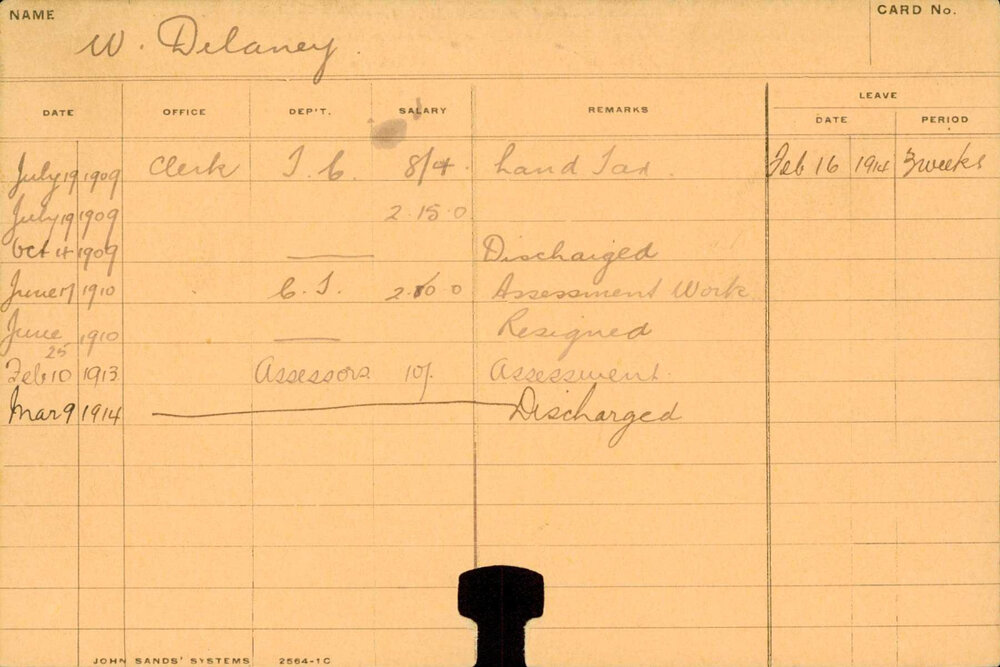 NAME W. Delaney. CARD No.
DATE OFFICE DEP'T. SALARY REMARKS LEAVE
DATE PERIOD
July 19 1909 Clerk T. C. 8/4 Land Tax. Feb 16 1914 3 weeks
July 19 1909 2.15.0
Oct 4 1909 Discharged
June 17 1910 C. T. 2.10.0 Assessment Work
June 25 1910 Resigned
Feb 10 1913 Assessors 10/. Assessment.
Mar 9 1914 Discharged
JOHN SANDS' SYSTEMS 2564-1C